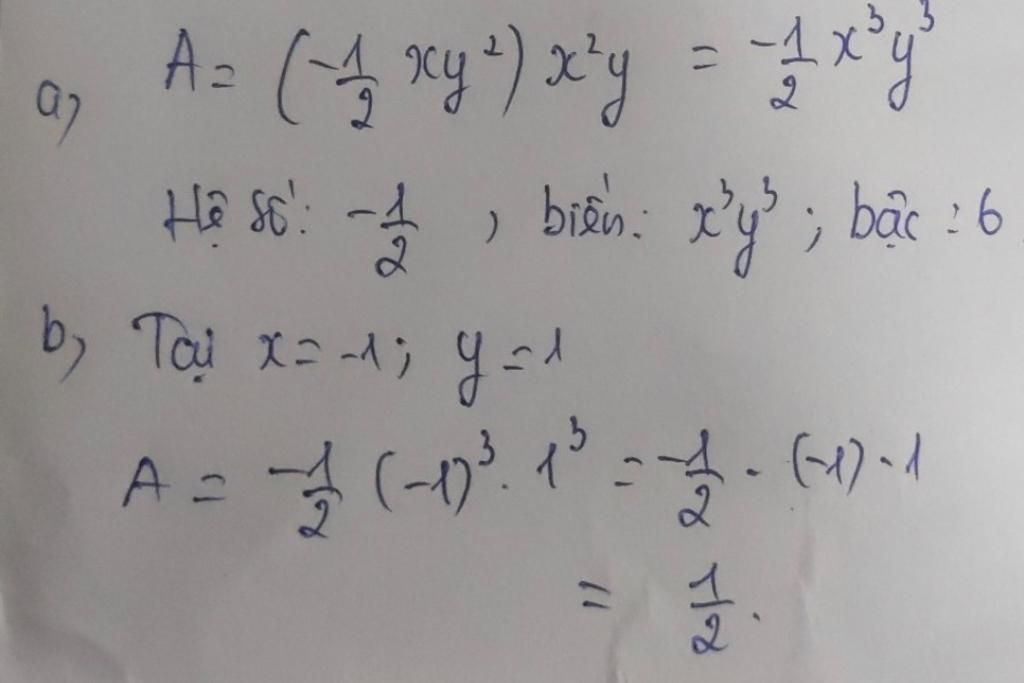 a) A = (-1/2 xy²) x²y = -1/2 x³y³
Hệ số: -1/2 , biến: x³y³ ; bậc : 6
b) Tại x = -1; y = 1
A = -1/2 (-1)³ . 1³ = -1/2 . (-1) . 1
= 1/2 .